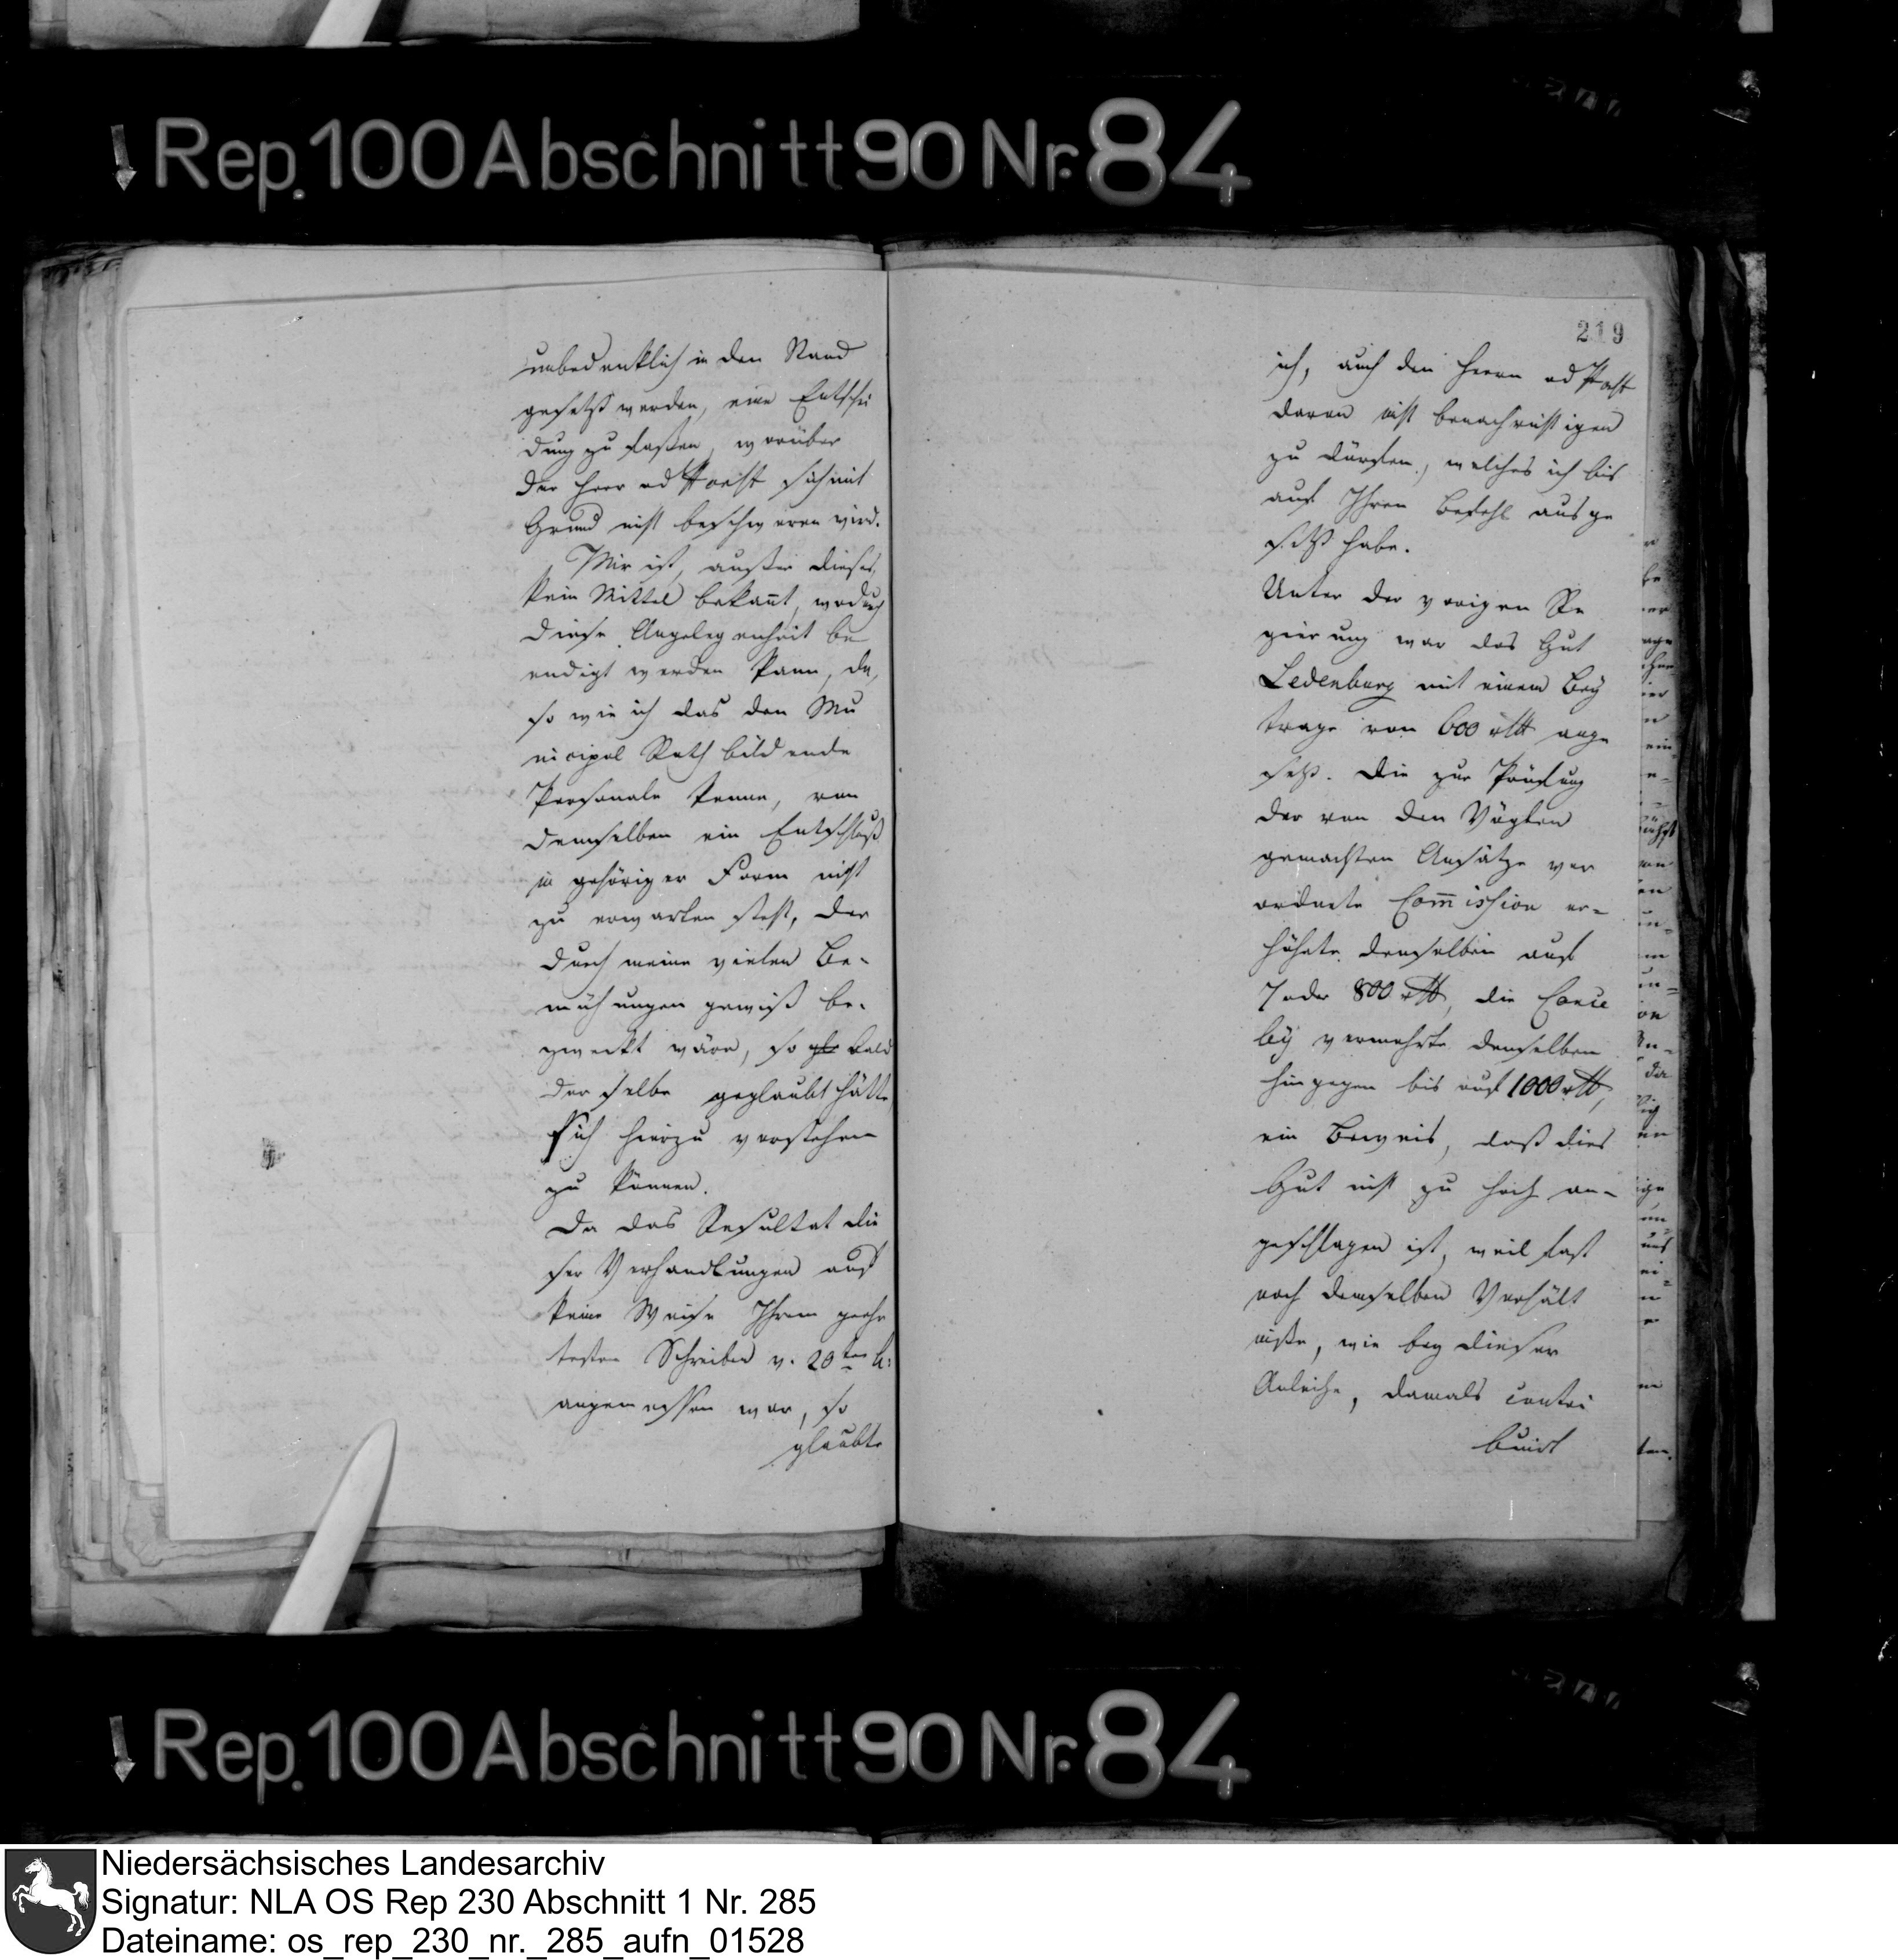 Rep. 100 Abschnitt 90 Nr. 84
unbedenklich in den Stand
gesetzt werden, eine Entschei
dung zu faßen, worüber
der Herr ad sich mit
Grund nicht beschweren wird.
Mir ist, außer dieses,
kein Mittel bekañt, wodurch
diese Angelegenheit be
endigt werden kann, da,
so wie ich das den Mu
nicipal Rath bildende
Personale kenne, von
demselben ein Entschluß
in gehöriger Form nicht
zu erwarten steht, der
durch meine vielen Be-
mühungen gewiß be-
zweckt wäre, so bald
derselbe geglaubt hätte,
sich hierzu verstehen
zu können.
Da das Resultat die
ser Verhandlungen auf
keine Weise Ihrem geehr
testen Schreiben v. 20ten h:
angemessen war, so
glaubte
219
ich, auch den Herrn ad
davon nicht benachrichtigen
zu dürfen, welches ich bis
auf Ihren Befehl ausge
setzt habe.
Unter der vorigen Re
gierung war das Gut
Ledenburg mit einem Bey
trage von 600 rtt ange
setzt. Die zur Prüfung
der von den Vögten
gemachten Ansätze ver
ordnete Com̄ission er-
höhete denselben auf
7 oder 800 rtt, die Cance
ley vermehrte denselben
hingegen bis auf 1000 rtt,
ein Beweis, daß dies
Gut nicht zu hoch an-
geschlagen ist, weil fast
nach demselben Verhält
niße, wie bey dieser
Anleihe, damals contri
buirt
Rep. 100 Abschnitt 90 Nr. 84
Niedersächsisches Landesarchiv
Signatur: NLA OS Rep 230 Abschnitt 1 Nr. 285
Dateiname: os_rep_230_nr._285_aufn_01528